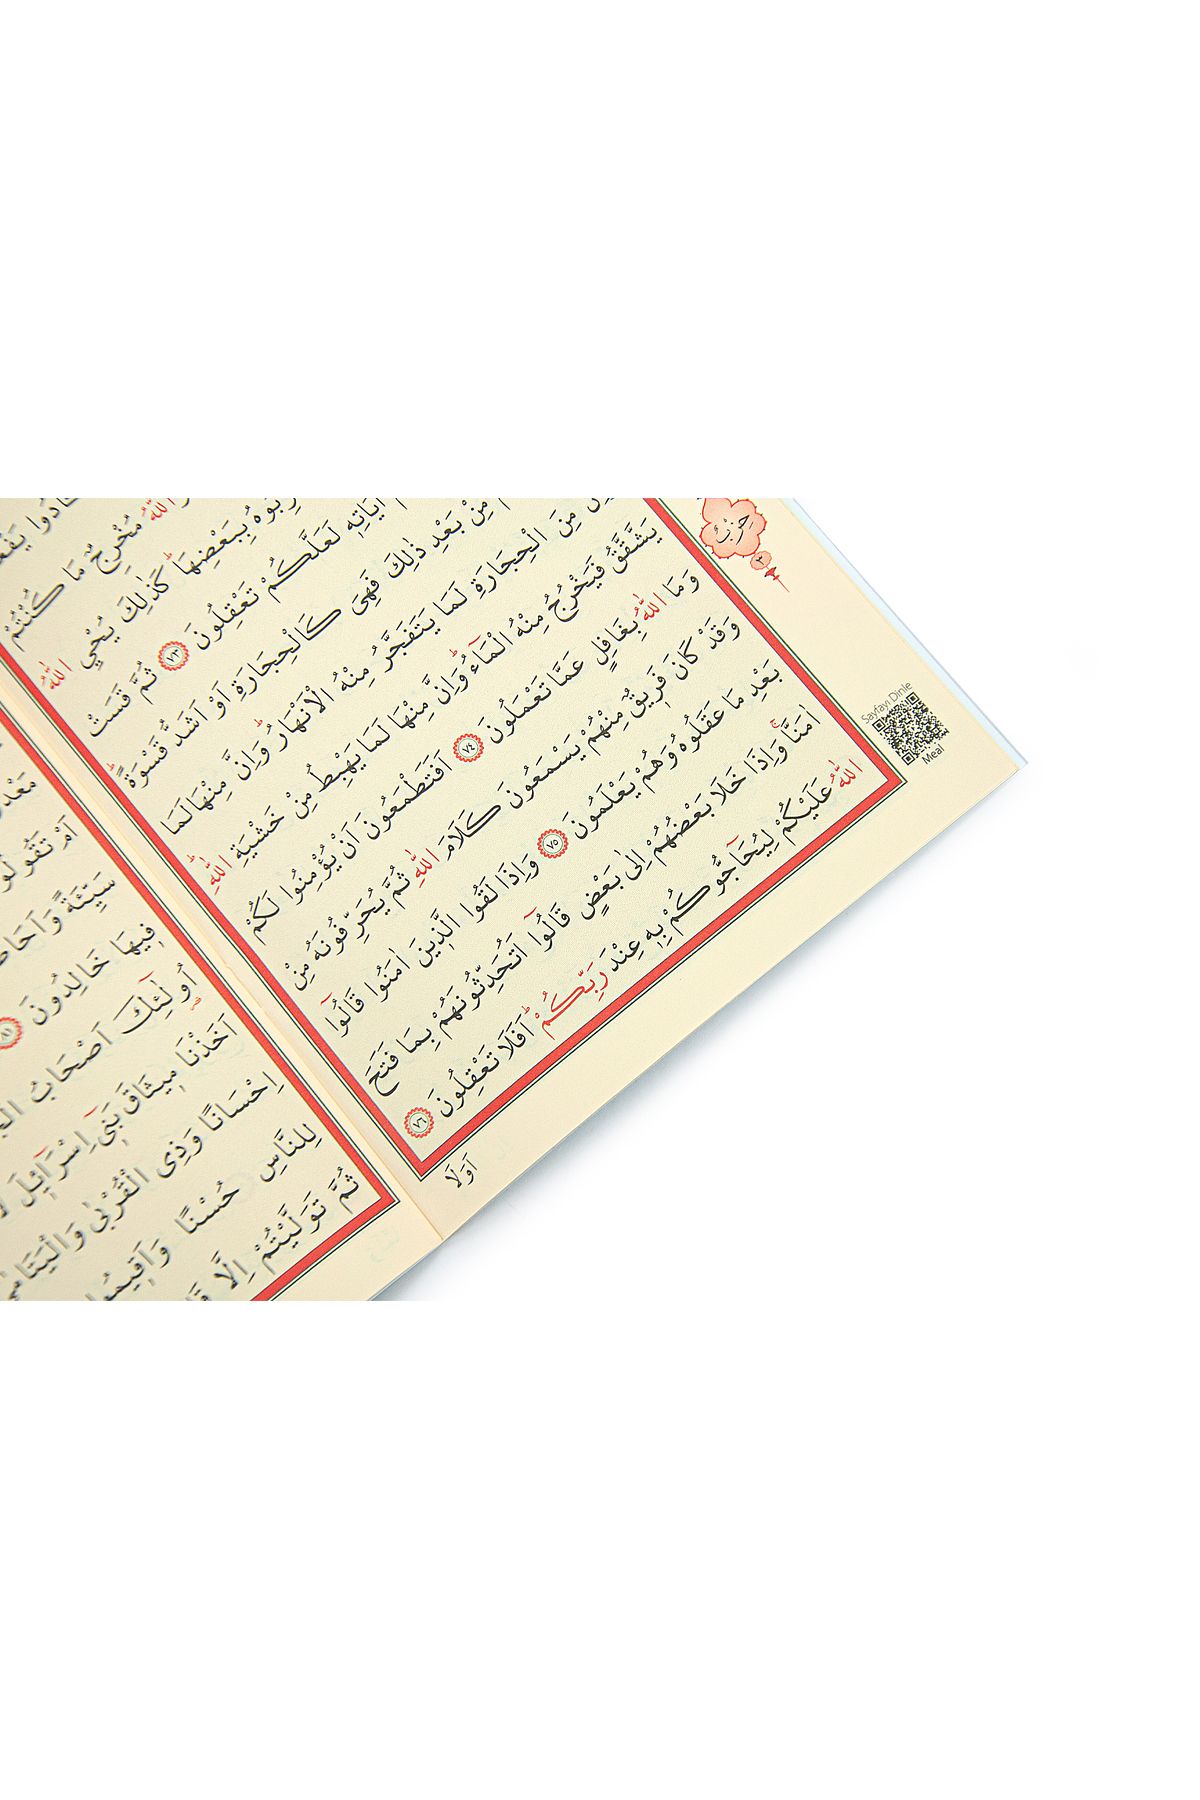 كَادُوا
اللّٰهُ مُخْرِجٌ مَا كُنْتُمْ
بِبَعْضِهَا كَذٰلِكَ يُحْيِي اللّٰهُ
اٰيَاتِه۪ لَعَلَّكُمْ تَعْقِلُونَ ﴿٧٣﴾ ثُمَّ قَسَتْ
مِنْ بَعْدِ ذٰلِكَ فَهِيَ كَالْحِجَارَةِ اَوْ اَشَدُّ قَسْوَةًۜ
مِنَ الْحِجَارَةِ لَمَا يَتَفَجَّرُ مِنْهُ الْاَنْهَارُۜ وَاِنَّ مِنْهَا لَمَا
يَشَّقَّقُ فَيَخْرُجُ مِنْهُ الْمَٓاءُۜ وَاِنَّ مِنْهَا لَمَا يَهْبِطُ مِنْ خَشْيَةِ اللّٰهِۜ
وَمَا اللّٰهُ بِغَافِلٍ عَمَّا تَعْمَلُونَ ﴿٧٤﴾ اَفَتَطْمَعُونَ اَنْ يُؤْمِنُوا لَكُمْ
وَقَدْ كَانَ فَر۪يقٌ مِنْهُمْ يَسْمَعُونَ كَلَامَ اللّٰهِ ثُمَّ يُحَرِّفُونَهُ مِنْ
بَعْدِ مَا عَقَلُوهُ وَهُمْ يَعْلَمُونَ ﴿٧٥﴾ وَاِذَا لَقُوا الَّذ۪ينَ اٰمَنُوا قَالُٓوا
اٰمَنَّاۚ وَاِذَا خَلَا بَعْضُهُمْ اِلٰى بَعْضٍ قَالُٓوا اَتُحَدِّثُونَهُمْ بِمَا فَتَحَ
اللّٰهُ عَلَيْكُمْ لِيُحَٓاجُّوكُمْ بِه۪ عِنْدَ رَبِّكُمْۜ اَفَلَا تَعْقِلُونَ ﴿٧٦﴾
اَوَلَا
حِزْبْ
٣
Sayfayı Dinle
Meal
اَمْ تَقُولُونَ
سَيِّئَةً وَاَحَاطَتْ
ف۪يهَا خَالِدُونَ ﴿٨١﴾
اُولٰٓئِكَ اَصْحَابُ
اَخَذْنَا م۪يثَاقَ بَن۪ٓي اِسْرَٓائ۪لَ لَا
اِحْسَانًا وَذِي الْقُرْبٰى وَالْيَتَامٰى
لِلنَّاسِ حُسْنًا وَاَق۪يمُوا
ثُمَّ تَوَلَّيْتُمْ اِلَّا